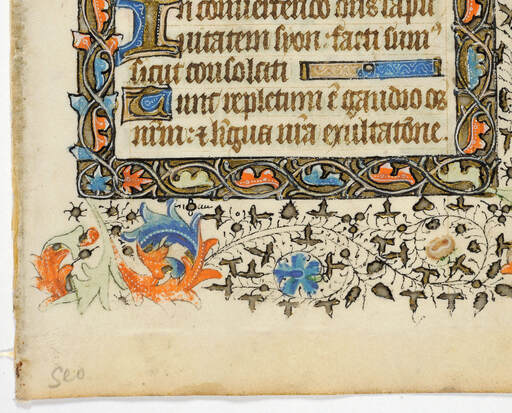 In convertendo dn̄s capti
uitatem syon: facti sum⁹
sicut consolati
Tunc repletum ē gaudio os
nrm: ⁊ līgua nr̄a exultatōne.
Seo